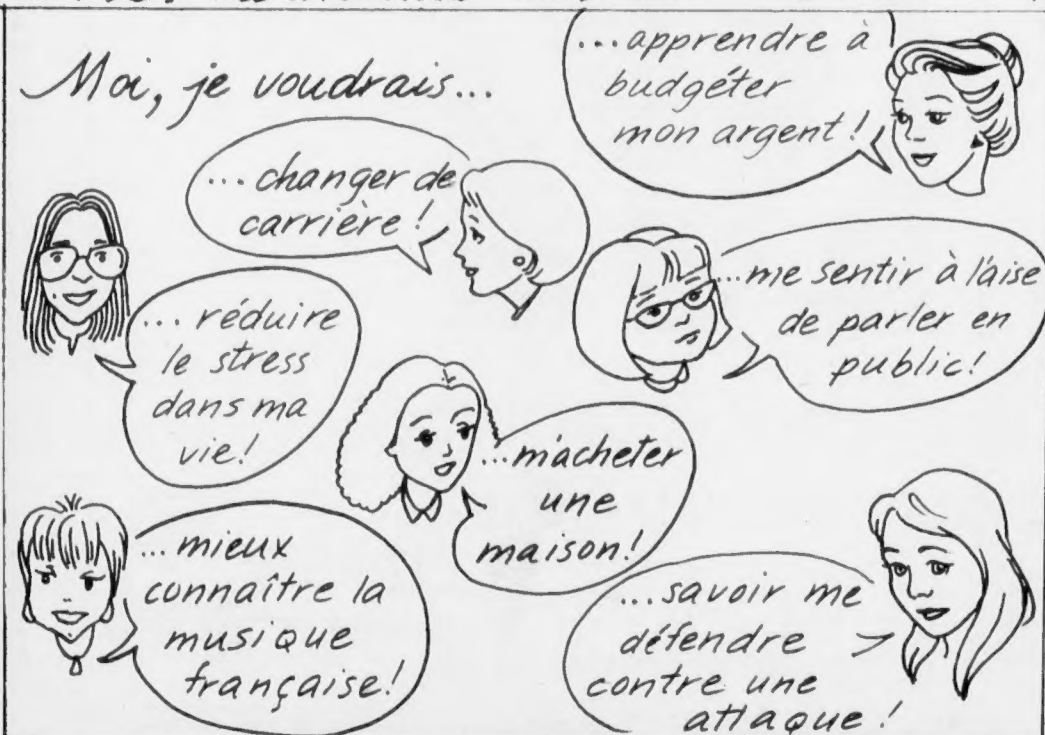 Moi, je voudrais...
...apprendre à
budgéter
mon argent!
...changer de
carrière!
...me sentir à l'aise
de parler en
public!
...réduire
le stress
dans ma
vie!
...m'acheter
une
maison!
...mieux
connaître la
musique
française!
...savoir me
défendre
contre une
attaque!